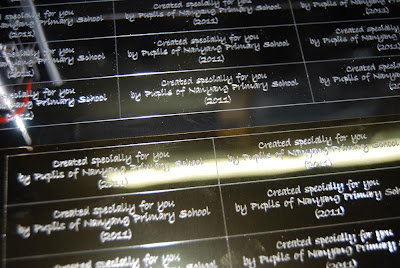 specially for you
Nanyang Primary School
(2011)
Created specially for you
by Pupils of Nanyang Primary School
(2011)
specially for you
Nanyang Primary School
(2011)
Created specially for you
by Pupils of Nanyang Primary School
(2011)
Created specially
by Pupils of Nanyang Primary
(2011)
specially for you
Primary School
(2011)
Created specially for you
by Pupils of Nanyang Primary School
(2011)
Created specially
by Pupils of Nanyang
Created specially for you
by Pupils of Nanyang Primary School
(2011)
Created specially for you
by Pupils of Nanyang Primary School
(2011)
Created specially for you
by Pupils of Nanyang Primary School
(2011)
Created specially for you
by Pupils of Nanyang Primary School
(2011)
Created specially for you
Created specially for you
by Pupils of Nanyang Primary